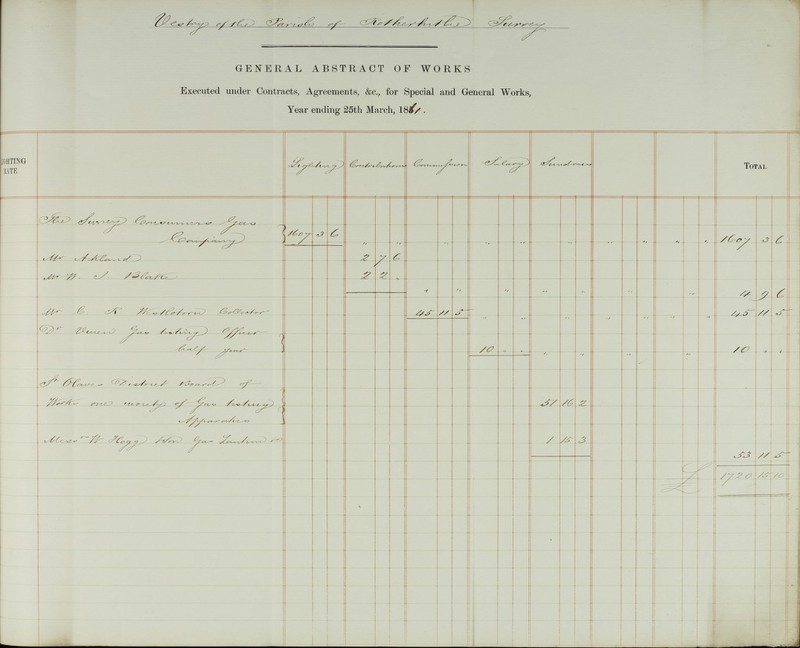 Vestry of the Parish of Rotherhithe Surrey
GENERAL ABSTRACT OF WORKS
Executed under Contracts, Agreements, &c., for Special and General Works,
Year ending 25th March, 1861.
LIGHTING RATE
Lighting Contributions Commission Salary Sundries TOTAL
The Surrey Consumers Gas
Company 1607 3 6 1607 3 6
Mr Ackland 2 7 6
Mr W. J. Blake 2 2 "
4 9 6
Mr C. R Collector 45 11 5 45 11 5
Dr Gas testing Officer
half year 10 " " 10 " "
St Olaves District Board of
Works one moiety of Gas testing 51 16 2
Apparatus
Messrs W Hogg Son Gas 1 15 3
53 11 5
£ 1720 15 10